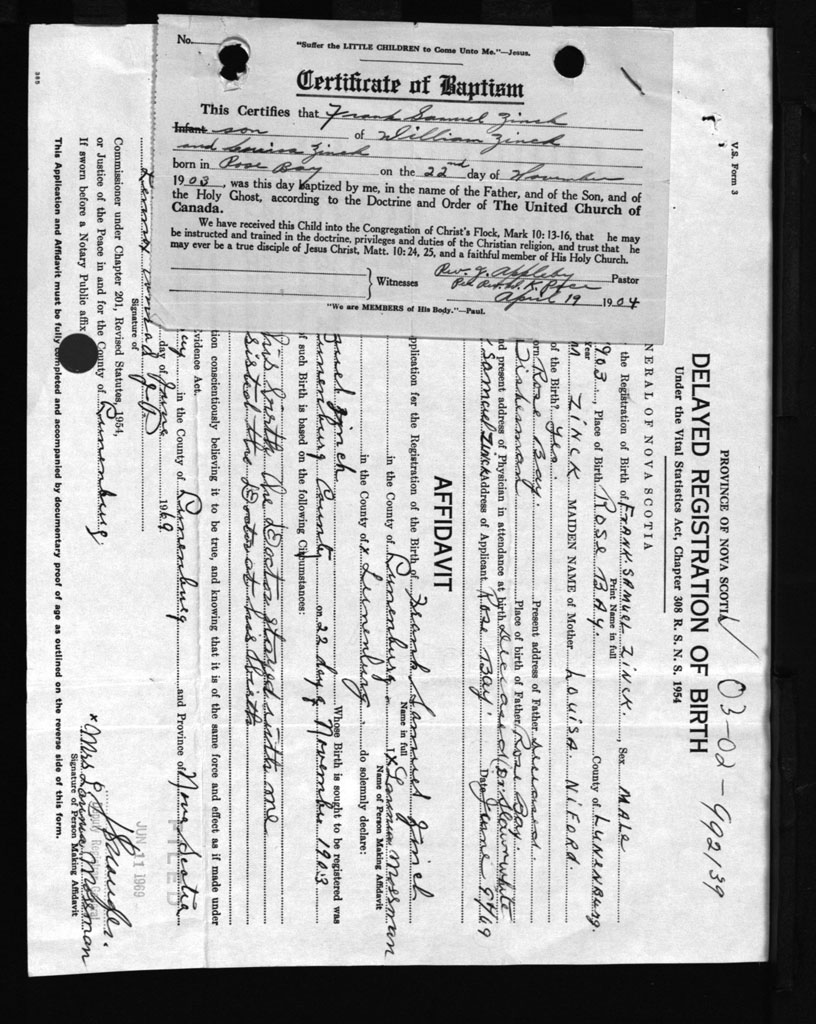 No.
"Suffer the LITTLE CHILDREN to Come Unto Me."—Jesus.
Certificate of Baptism
This Certifies that Frank Samuel Zinck
Infant son of William Zinck
and Louisa Zinck
born in Rose Bay on the 22nd day of November
1903, was this day baptized by me, in the name of the Father, and of the Son, and of
the Holy Ghost, according to the Doctrine and Order of The United Church of
Canada.
We have received this Child into the Congregation of Christ's Flock, Mark 10: 13-16, that he may
be instructed and trained in the doctrine, privileges and duties of the Christian religion, and trust that he
may ever be a true disciple of Jesus Christ, Matt. 10: 24, 25, and a faithful member of His Holy Church.
Rev. J. Appleby Pastor
Witnesses
April 19 1904
"We are MEMBERS of His Body."—Paul.
V.S. Form 3
PROVINCE OF NOVA SCOTIA
03-02-992139
DELAYED REGISTRATION OF BIRTH
Under the Vital Statistics Act, Chapter 308 R. S. N. S. 1954
NERAL OF NOVA SCOTIA
the Registration of Birth of FRANK SAMUEL ZINCK. , Sex MALE
Print Name in full
903 , Place of Birth ROSE BAY. County of LUNENBURG.
Year
M ZINCK MAIDEN NAME of Mother LOUISA. NIFORD.
of the Birth? Yes.
orn Rose Bay. Present address of Father deceased.
Fisherman Place of birth of Father Rose Bay.
nd present address of Physician in attendance at birth deceased
Samuel Zinck Address of Applicant Rose Bay. Date June 9/69
AFFIDAVIT
pplication for the Registration of the Birth of Frank Samuel Zinck
Name in full
in the County of Lunenburg. x Lannie Mosman
Name of Person Making Affidavit
in the County of x Lunenburg. do solemnly declare:
muel Zinck Whose Birth is sought to be registered was
Lunenburg County on 22 day of November 1903
of such Birth is based on the following Circumstances:
his birth the Doctor stayed with me
sisted the Doctor at his birth
tion conscientiously believing it to be true, and knowing that it is of the same force and effect as if made under
vidence Act.
in the County of Lunenburg and Province of Nova Scotia
day of June 1969
Signature of
Commissioner under Chapter 201, Revised Statutes, 1954,
or Justice of the Peace in and for the County of Lunenburg
If sworn before a Notary Public affix
JUN 11 1969
x Mrs Lannie Mosman
Signature of Person Making Affidavit
This Application and Affidavit must be fully completed and accompanied by documentary proof of age as outlined on the reverse side of this form.